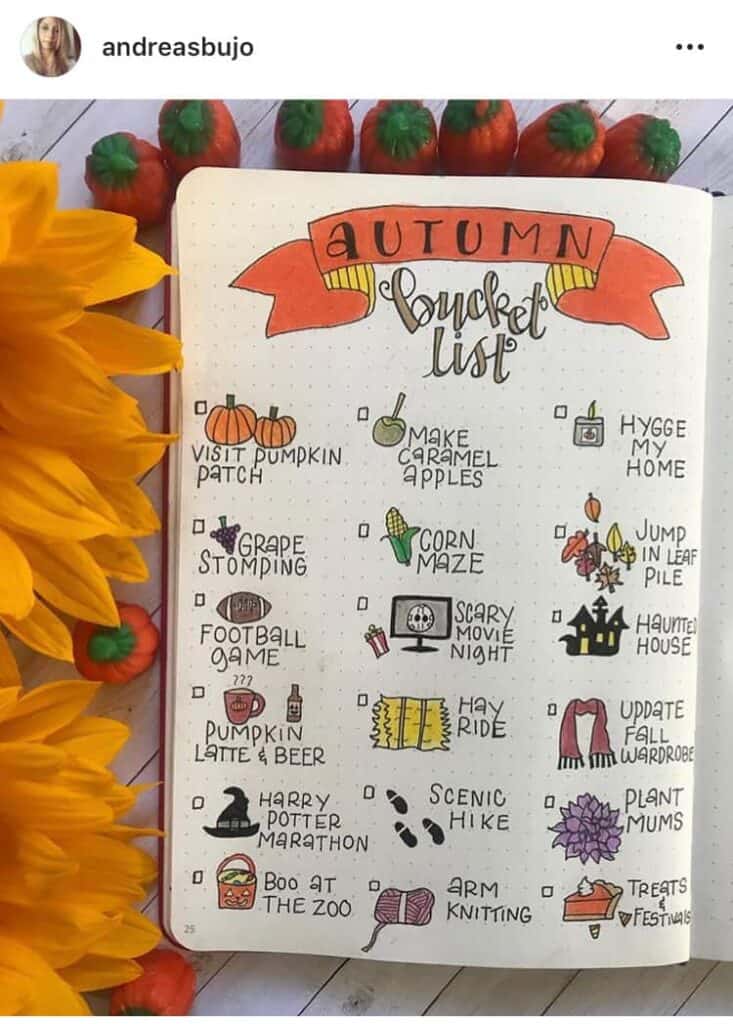 andreasbujo
AUTUMN
bucket
list
VISIT PUMPKIN
PATCH
MAKE
CARAMEL
APPLES
HYGGE
MY
HOME
GRAPE
STOMPING
CORN
MAZE
JUMP
IN LEAF
PILE
FOOTBALL
GAME
SCARY
MOVIE
NIGHT
HAUNTED
HOUSE
???
PUMPKIN
LATTE & BEER
HAY
RIDE
UPDATE
FALL
WARDROBE
HARRY
POTTER
MARATHON
SCENIC
HIKE
PLANT
MUMS
BOO AT
THE ZOO
ARM
KNITTING
TREATS
&
FESTIVALS
25